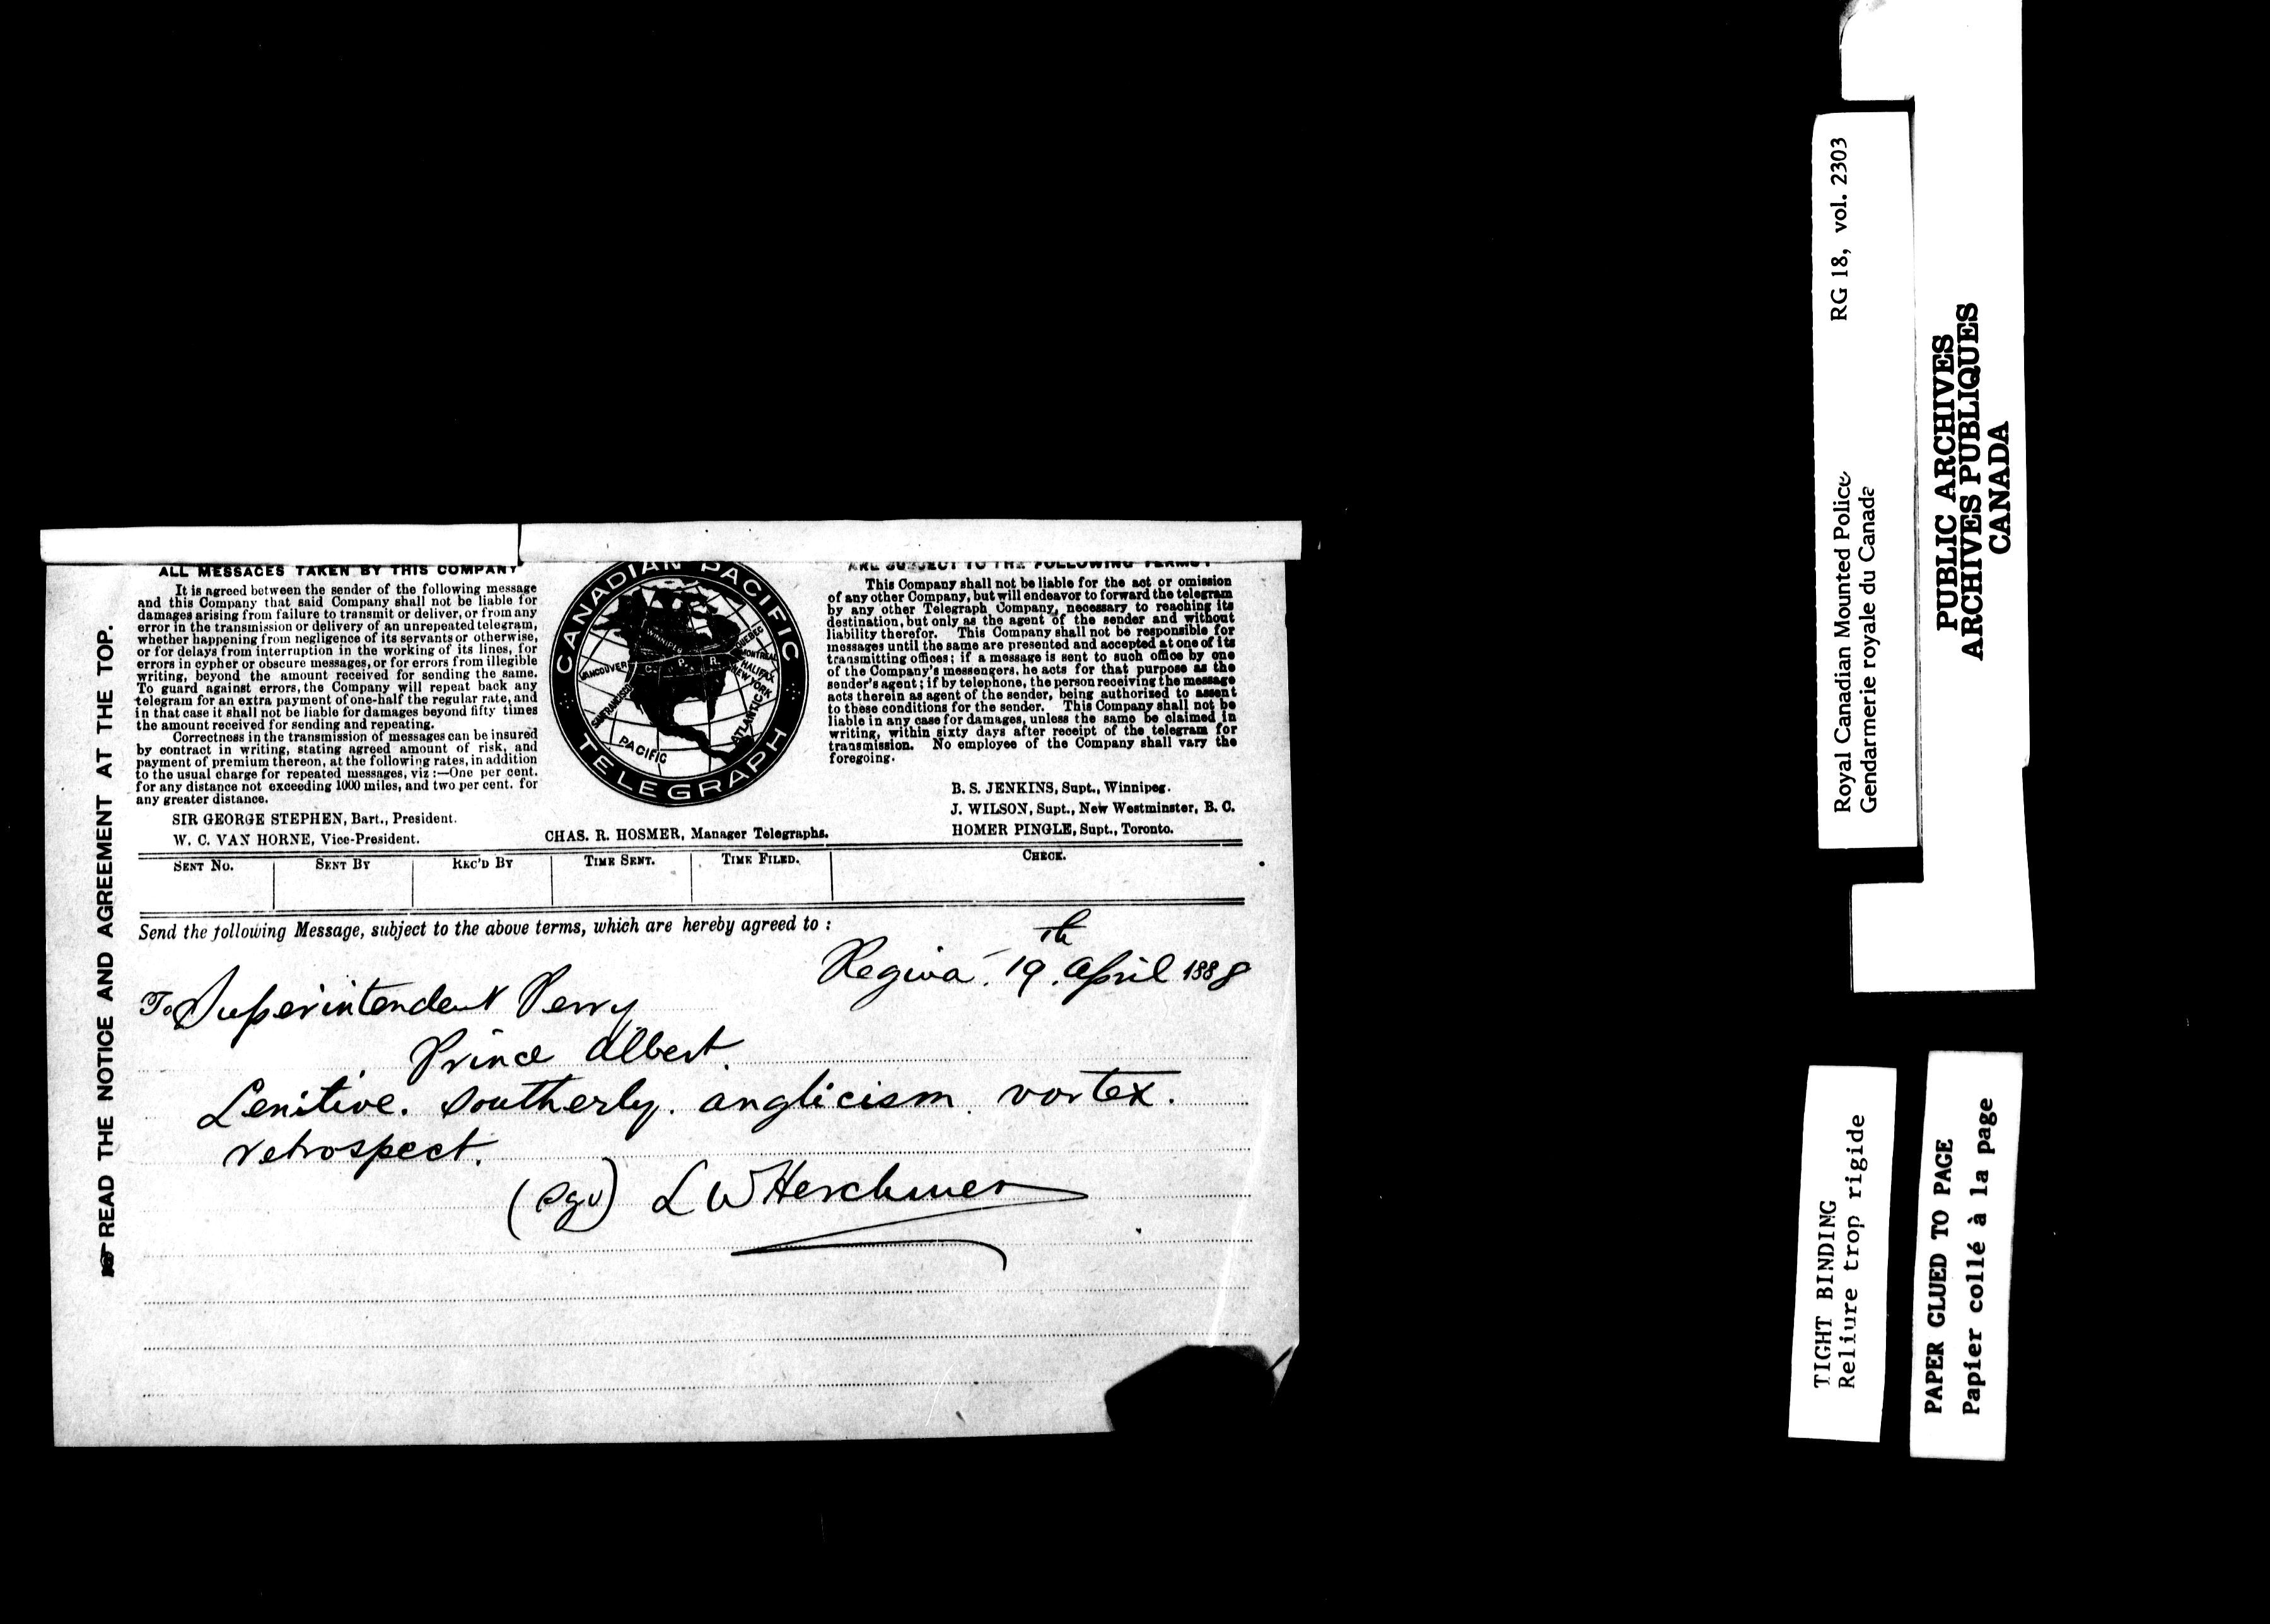 ALL MESSAGES TAKEN BY THIS COMPANY
It is agreed between the sender of the following message
and this Company that said Company shall not be liable for
damages arising from failure to transmit or deliver, or from any
error in the transmission or delivery of an unrepeated telegram,
whether happening from negligence of its servants or otherwise,
or for delays from interruption in the working of its lines, for
errors in cypher or obscure messages, or for errors from illegible
writing, beyond the amount received for sending the same.
To guard against errors, the Company will repeat back any
telegram for an extra payment of one-half the regular rate, and
in that case it shall not be liable for damages beyond fifty times
the amount received for sending and repeating.
Correctness in the transmission of messages can be insured
by contract in writing, stating agreed amount of risk, and
payment of premium thereon, at the following rates, in addition
to the usual charge for repeated messages, viz :—One per cent.
for any distance not exceeding 1000 miles, and two per cent. for
any greater distance.
SIR GEORGE STEPHEN, Bart., President.
W. C. VAN HORNE, Vice-President.
CANADIAN PACIFIC
TELEGRAPH
WINNIPEG
QUEBEC
MONTREAL
VANCOUVER
C. P. R.
HALIFAX
NEW YORK
SAN FRANCISCO
ATLANTIC
PACIFIC
CHAS. R. HOSMER, Manager Telegraphs.
ARE SUBJECT TO THE FOLLOWING TERMS:
This Company shall not be liable for the act or omission
of any other Company, but will endeavor to forward the telegram
by any other Telegraph Company, necessary to reaching its
destination, but only as the agent of the sender and without
liability therefor. This Company shall not be responsible for
messages until the same are presented and accepted at one of its
transmitting offices; if a message is sent to such office by one
of the Company's messengers, he acts for that purpose as the
sender's agent; if by telephone, the person receiving the message
acts therein as agent of the sender, being authorized to assent
to these conditions for the sender. This Company shall not be
liable in any case for damages, unless the same be claimed in
writing, within sixty days after receipt of the telegram for
transmission. No employee of the Company shall vary the
foregoing.
B. S. JENKINS, Supt., Winnipeg.
J. WILSON, Supt., New Westminster, B. C.
HOMER PINGLE, Supt., Toronto.
READ THE NOTICE AND AGREEMENT AT THE TOP.
SENT NO. SENT BY REC'D BY TIME SENT. TIME FILED. CHECK.
Send the following Message, subject to the above terms, which are hereby agreed to :
Regina 19th April 1888
To Superintendent Perry
Prince Albert.
Lenitive. Southerly. anglicism. vortex.
retrospect.
(sgd) L W Herchmer
Royal Canadian Mounted Police RG 18, vol. 2303
Gendarmerie royale du Canada
PUBLIC ARCHIVES
ARCHIVES PUBLIQUES
CANADA
TIGHT BINDING
Reliure trop rigide
PAPER GLUED TO PAGE
Papier collé à la page